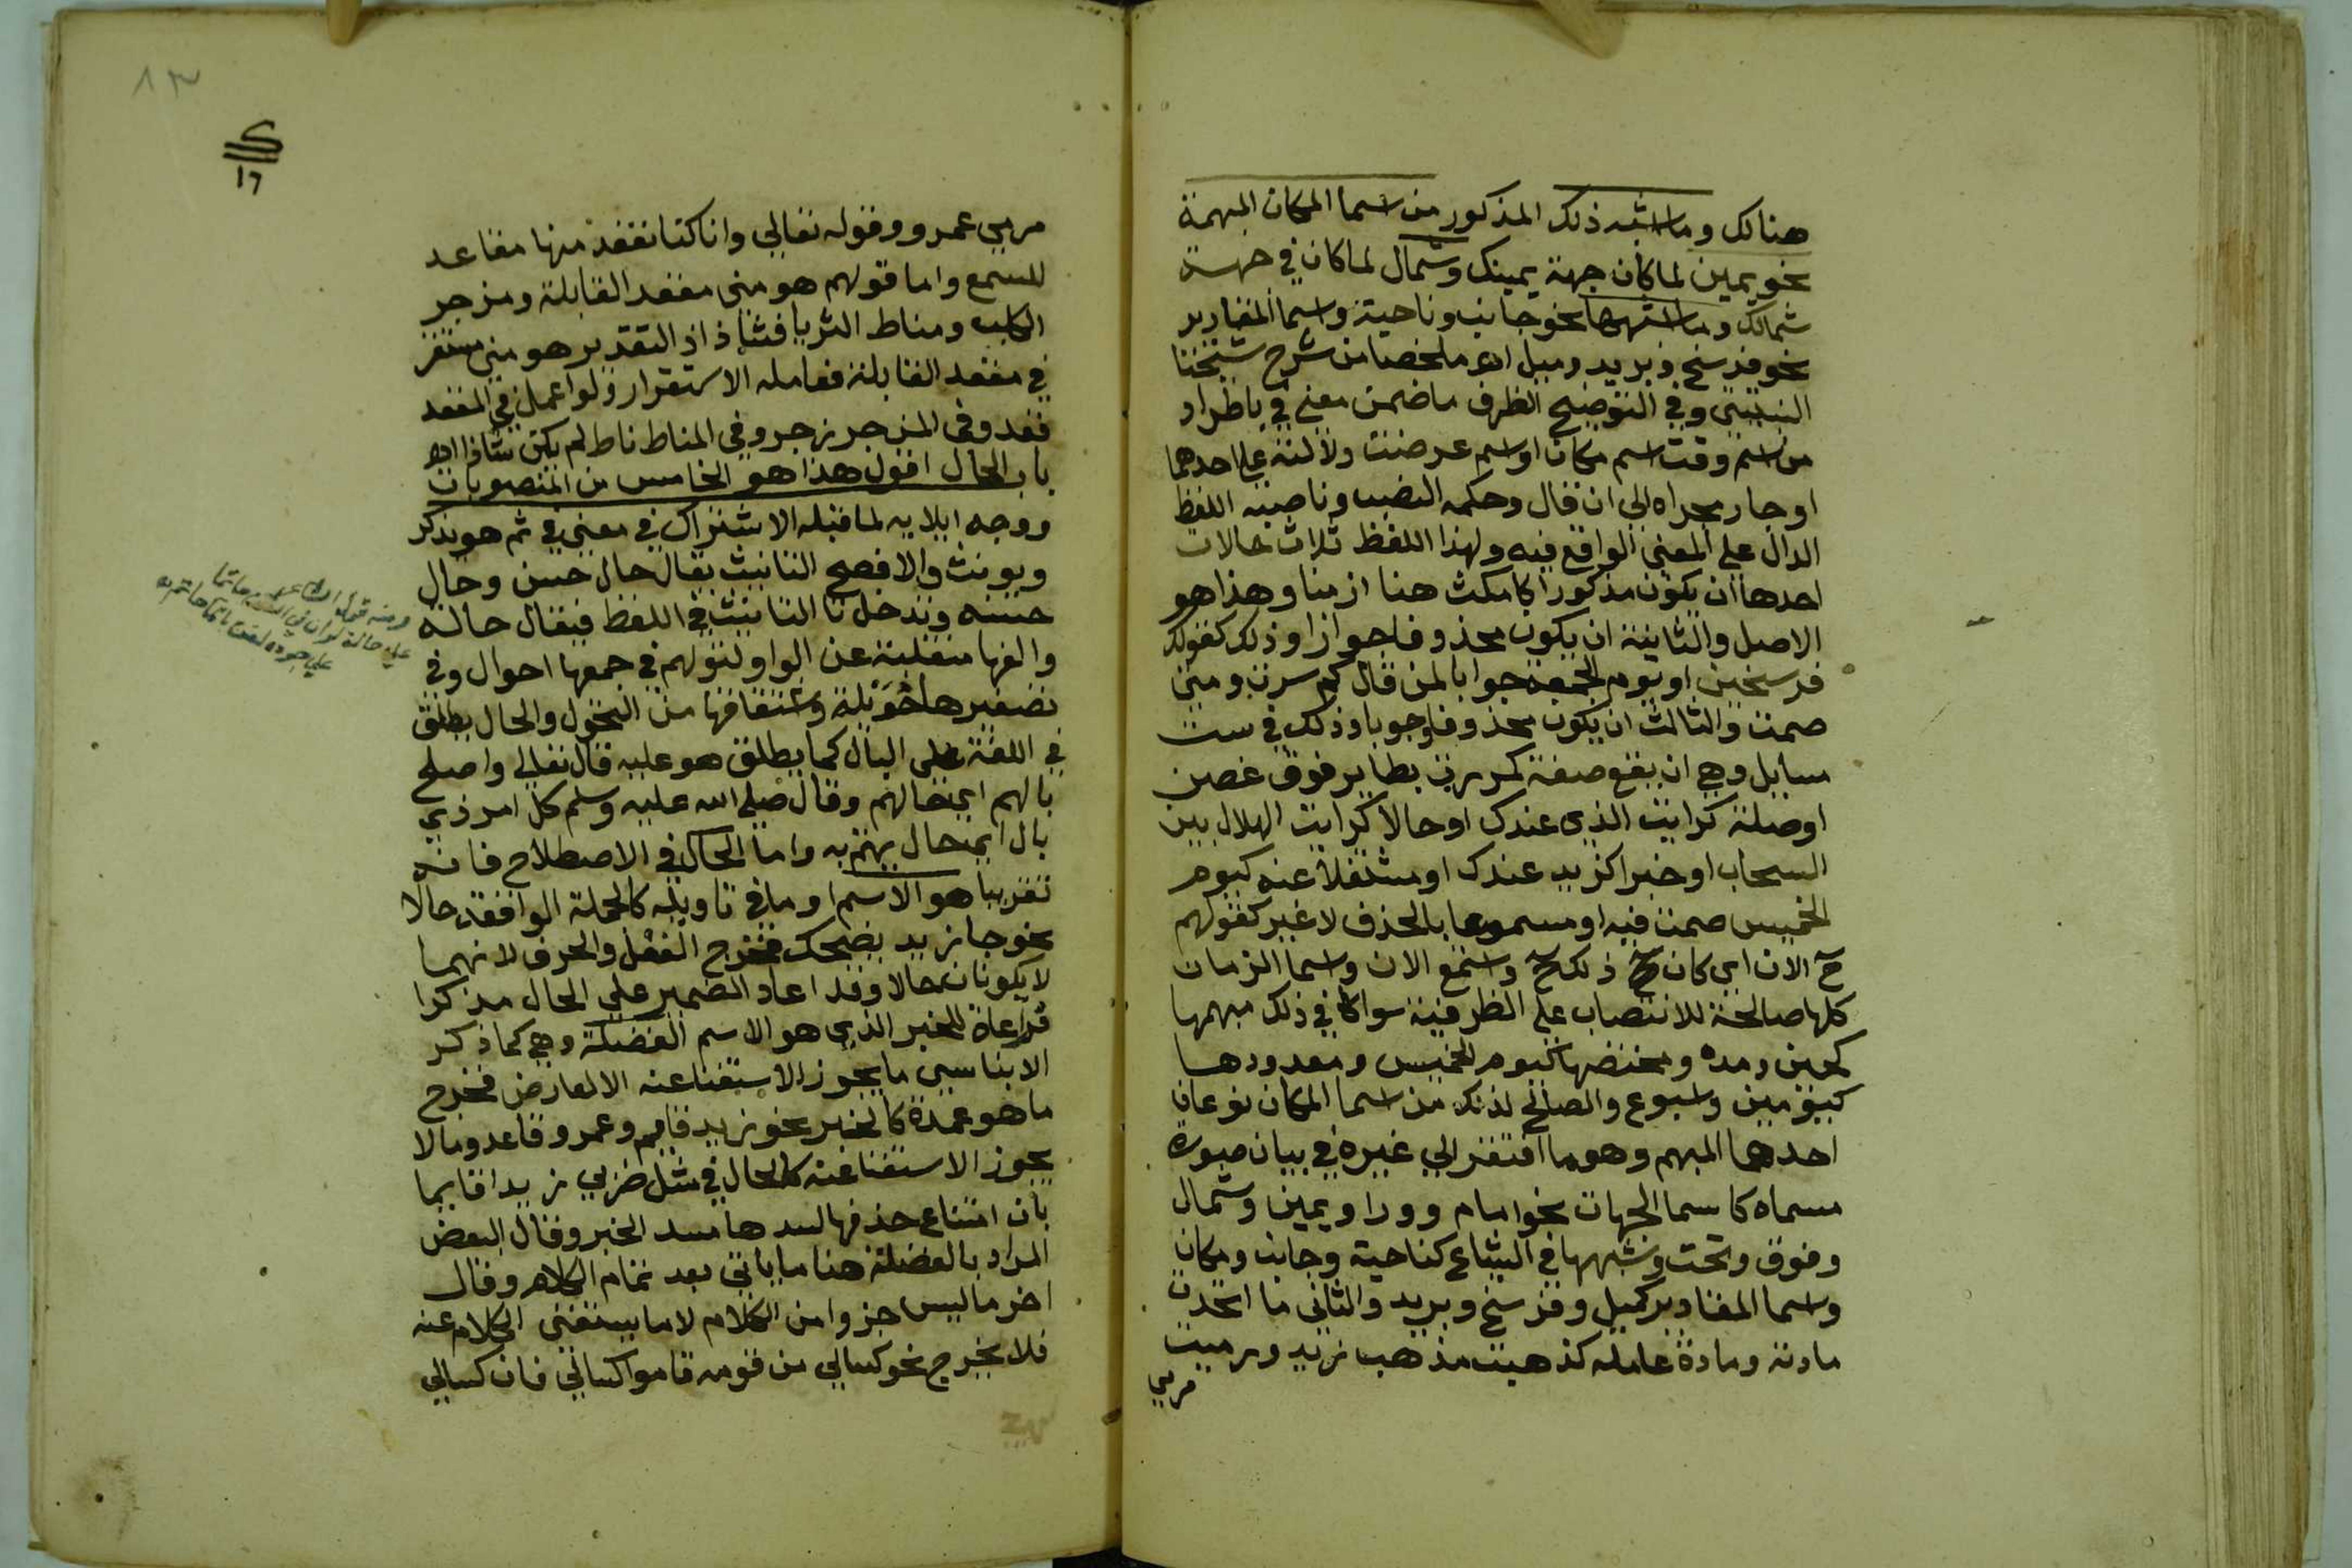 هنالك وما اشبه ذلك المذكور من اسما المكان المبهمة
نحو يمين لما كان جهة يمينك وشمال لما كان في جهة
شمالك وما اشبهها نحو جانب وناحية واسما المقادير
نحو فرسخ وبريد وميل اه ملخصا من شرح شيخنا
النبتيتي وفي التوضيح الظرف ما ضمن معني في باطراد
من اسم وقت اسم مكان او اسم عرضت دلالته علي احدهما
او جار مجراه الي ان قال وحكمه النصب وناصبه اللفظ
الدال علي المعني الواقع فيه ولهذا اللفظ ثلاث حالات
احدها ان يكون مذكورا كامكث هنا ازمنا وهذا هو
الاصل والثانية ان يكون محذوفا جوازا وذلك كقولك
فرسخين او يوم الجمعة جوابا لمن قال كم سرت ومتي
صمت والثالث ان يكون محذوفا وجوبا وذلك في ست
مسايل وهي ان يقع صفة كمررت بطاير فوق غصن
او صلة كرايت الذي عندك او حالا كرايت الهلال بين
السحاب او خبرا كزيد عندك او مشتغلا عنه كيوم
الخميس صمت فيه او مسموعا بالحذف لا غير كقولهم
ح الان اي كان ذلك ح واسمع الان واسما الزمان
كلها صالحة للانتصاب علي الظرفية سوا كا في ذلك مبهمها
كحين ومده ومختصها كيوم الخميس ومعدودها
كيومين واسبوع والصالح لذلك من اسما المكان نوعان
احدهما المبهم وهو ما افتقر الي غيره في بيان صورة
مسماه كاسما الجهات نحو امام وورا ويمين وشمال
وفوق وتحت وشبهها في الشياع كناحية وجانب ومكان
واسما المقادير كميل وفرسخ وبريد والثاني ما اتحدت
مادته ومادة عامله كذهبت مذهب زيد ورميت
مرمي
١٣
١٦
مرمي عمرو وقوله تعالي وانا كنا نقعد منها مقاعد
للسمع واما قولهم هو مني مقعد القابلة ومزجر
الكلب ومناط الثريا فشاذ اذ التقدير هو مني مستقر
في مقعد القابلة فعامله الاستقرار ولو اعمل في المقعد
قعد وفي المزجر زجر وفي المناط ناط لم يكن شاذا اه
باب الحال اقول هذا هو الخامس من المنصوبات
ووجه ايلايه لما قبله الاشتراك في معني في ثم هو يذكر
ويونث والافصح التانيث يقال حال حسن وحال
حسنه وتدخل تا التانيث في اللفظ فيقال حالة
والفها منقلبة عن الواو لقولهم في جمعها احوال وفي
تصغيرها حويلة واشتقاقها من التحول والحال يطلق
في اللغة علي البال كما يطلق هو عليه قال تعالي واصلح
بالهم اي حالهم وقال صلي الله عليه وسلم كل امر ذي
بال اي حال يهتم به واما الحال في الاصطلاح فانه
تقريبا هو الاسم او ما في تاويله كالجملة الواقعة حالا
نحو جا زيد يضحك فخرج الفعل والحرف لانهما
لا يكونان حالا وقد اعاد الضمير علي الحال مذكرا
مراعاة للخبر الذي هو الاسم الفضلة وهي كما ذكر
الابناسي ما يجوز الاستغنا عنه الا لعارض فخرج
ما هو عمدة كالخبر نحو زيد قايم وعمرو قاعد وما لا
يجوز الاستغنا عنه كالحال في مثل ضربي زيدا قايما
بان امتناع حذفها لسدها مسد الخبر وقال البعض
المراد بالفضلة هنا ما ياتي بعد تمام الكلام وقال
اخر ما ليس جزوا من الكلام لا ما يستغني الكلام عنه
فلا يخرج نحو كسالي من قوله قاموا كسالي فان كسالي
ومنه قول الشاعر
علي حالة لو ان في القوم حاتما
علي جوده لضن بالما حاتم